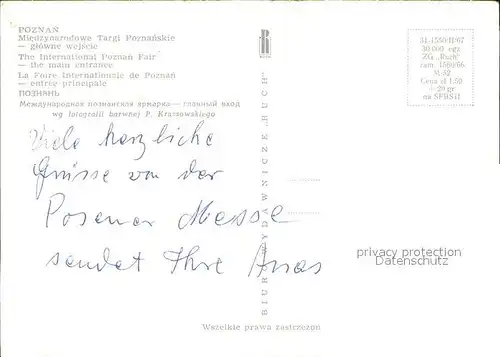 POZNAŃ
Międzynarodowe Targi Poznańskie
— główne wejście
The International Poznań Fair
— the main entrance
La Foire Internationale de Poznań
— entrée principale
ПОЗНАНЬ
Международная познанская ярмарка — главный вход
wg fotografii barwnej P. Krassowskiego
R
31-1550/II/67
30 000 egz.
ZG. „Ruch"
zam. 1580/66
M-52
Cena zł 1,50
+ 20 gr
na SFBSiI
Viele herzliche
Grüsse von der
Posener Messe
sendet Ihre
BIURO WYDAWNICZE „RUCH"
privacy protection
Datenschutz
Wszelkie prawa zastrzeżone